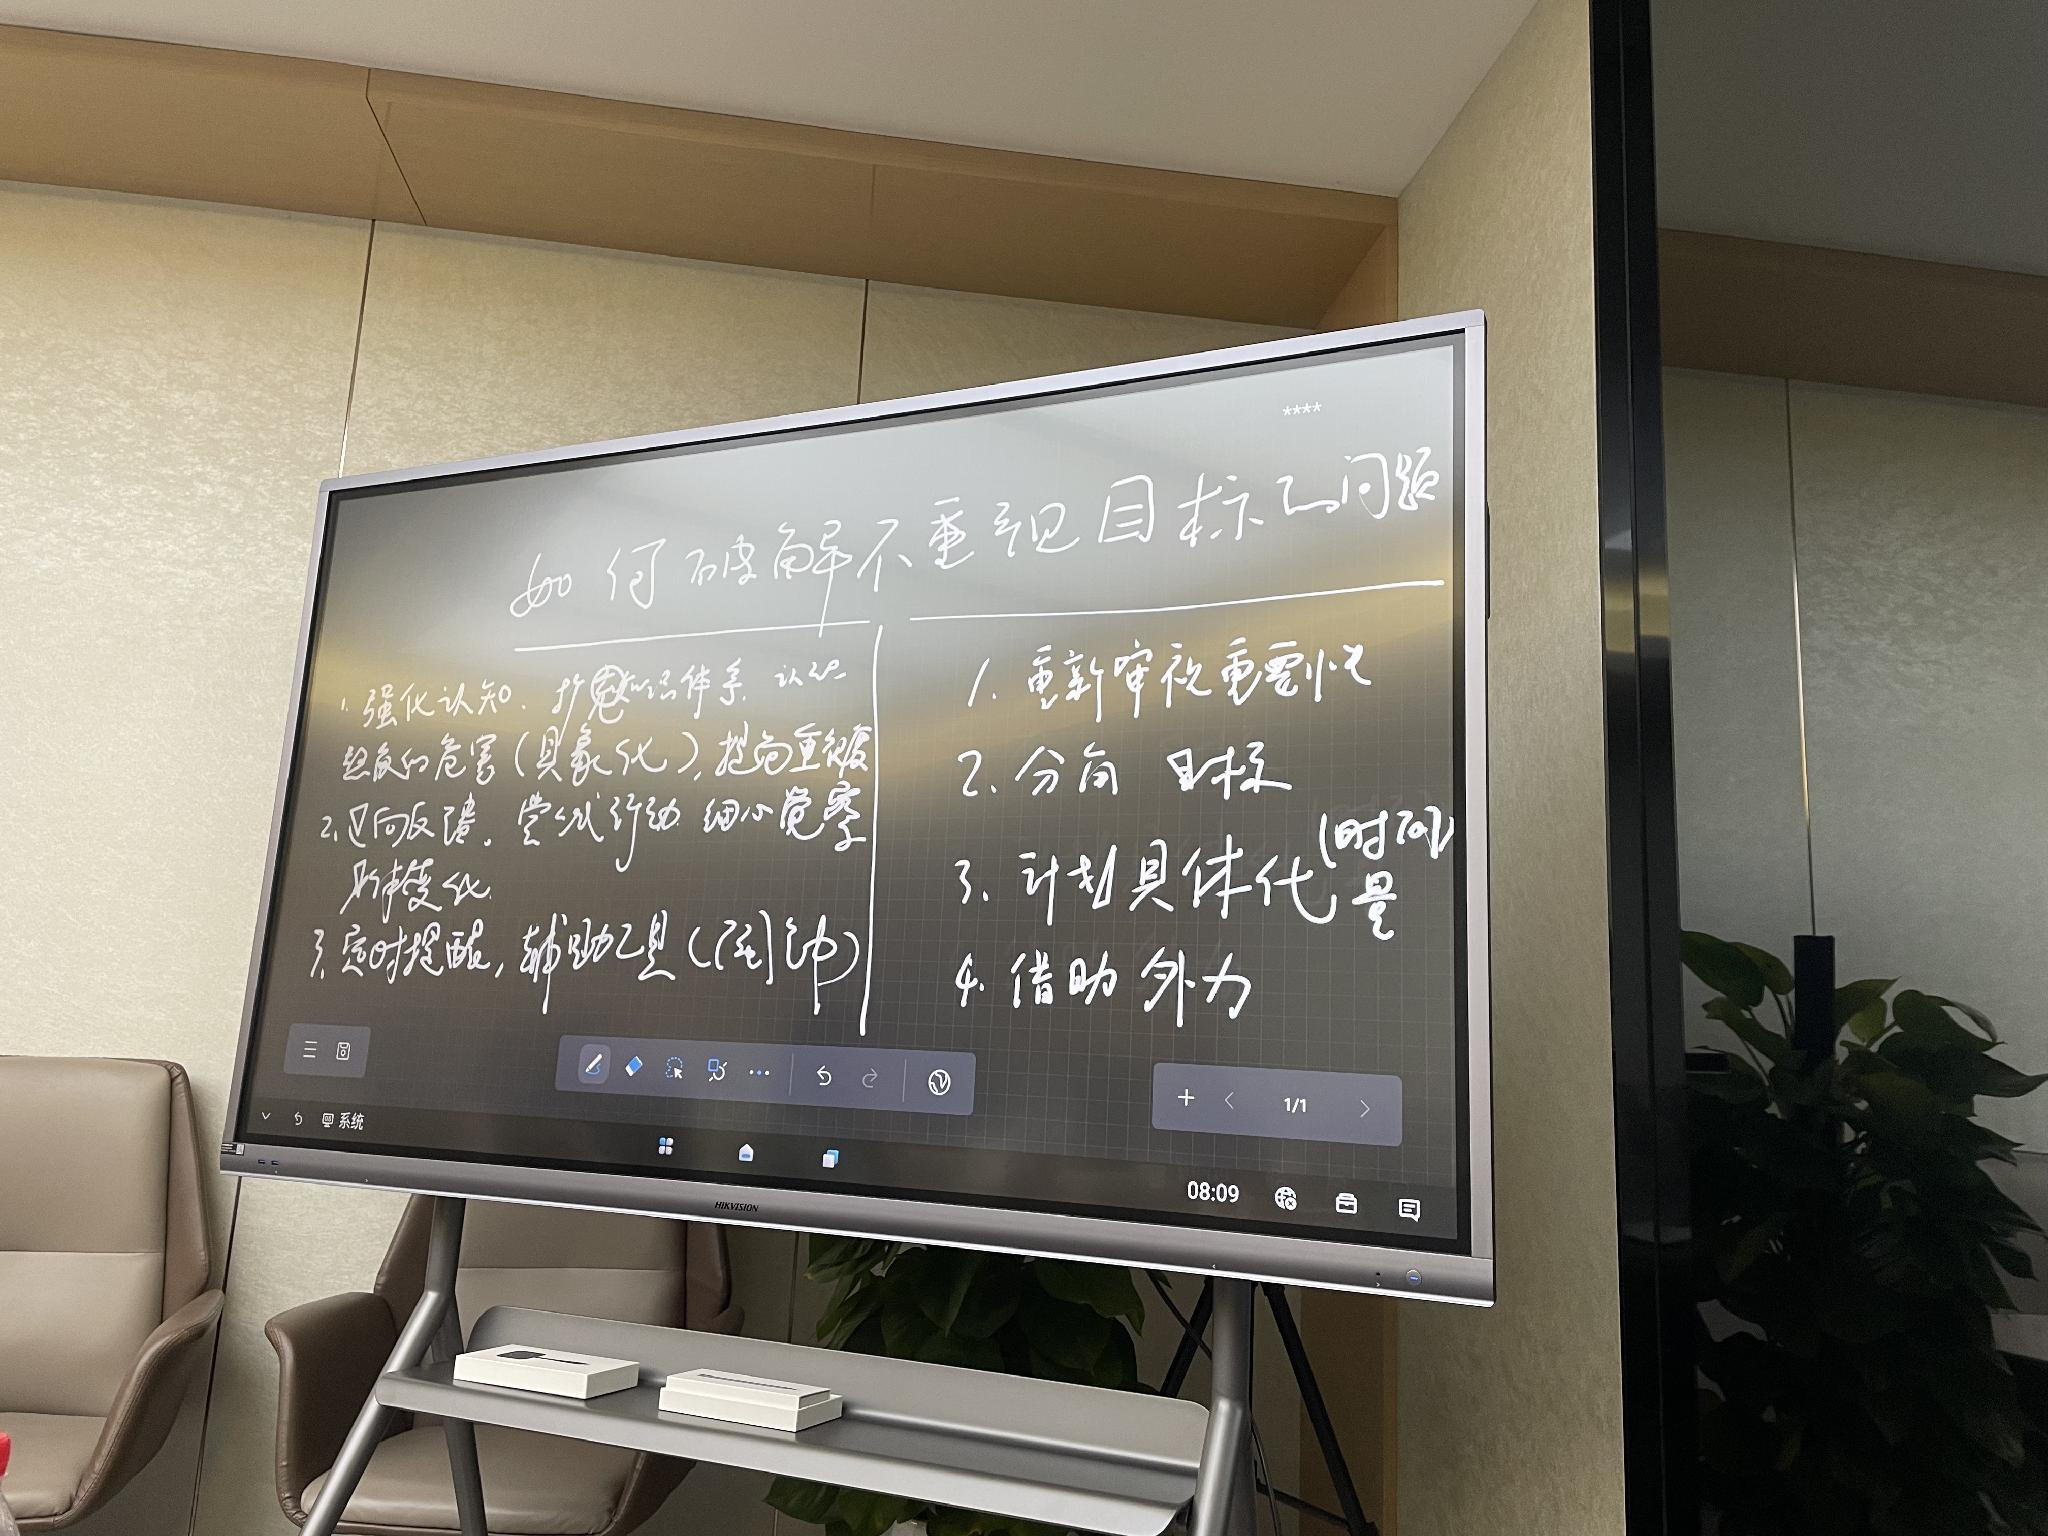 ****
如何破解不重视目标的问题
1. 强化认知. 扩宽知识体系 认识
的危害(具象化), 提高重视度
2. 正向反馈. 尝试行动 细小觉察
变化.
3. 定时提醒, 辅助工具(闹钟)
1. 重新审视重要性
2. 分向 目标
3. 计划具体化(时间)
量
4. 借助外力
1/1
系统
08:09
HIKVISION